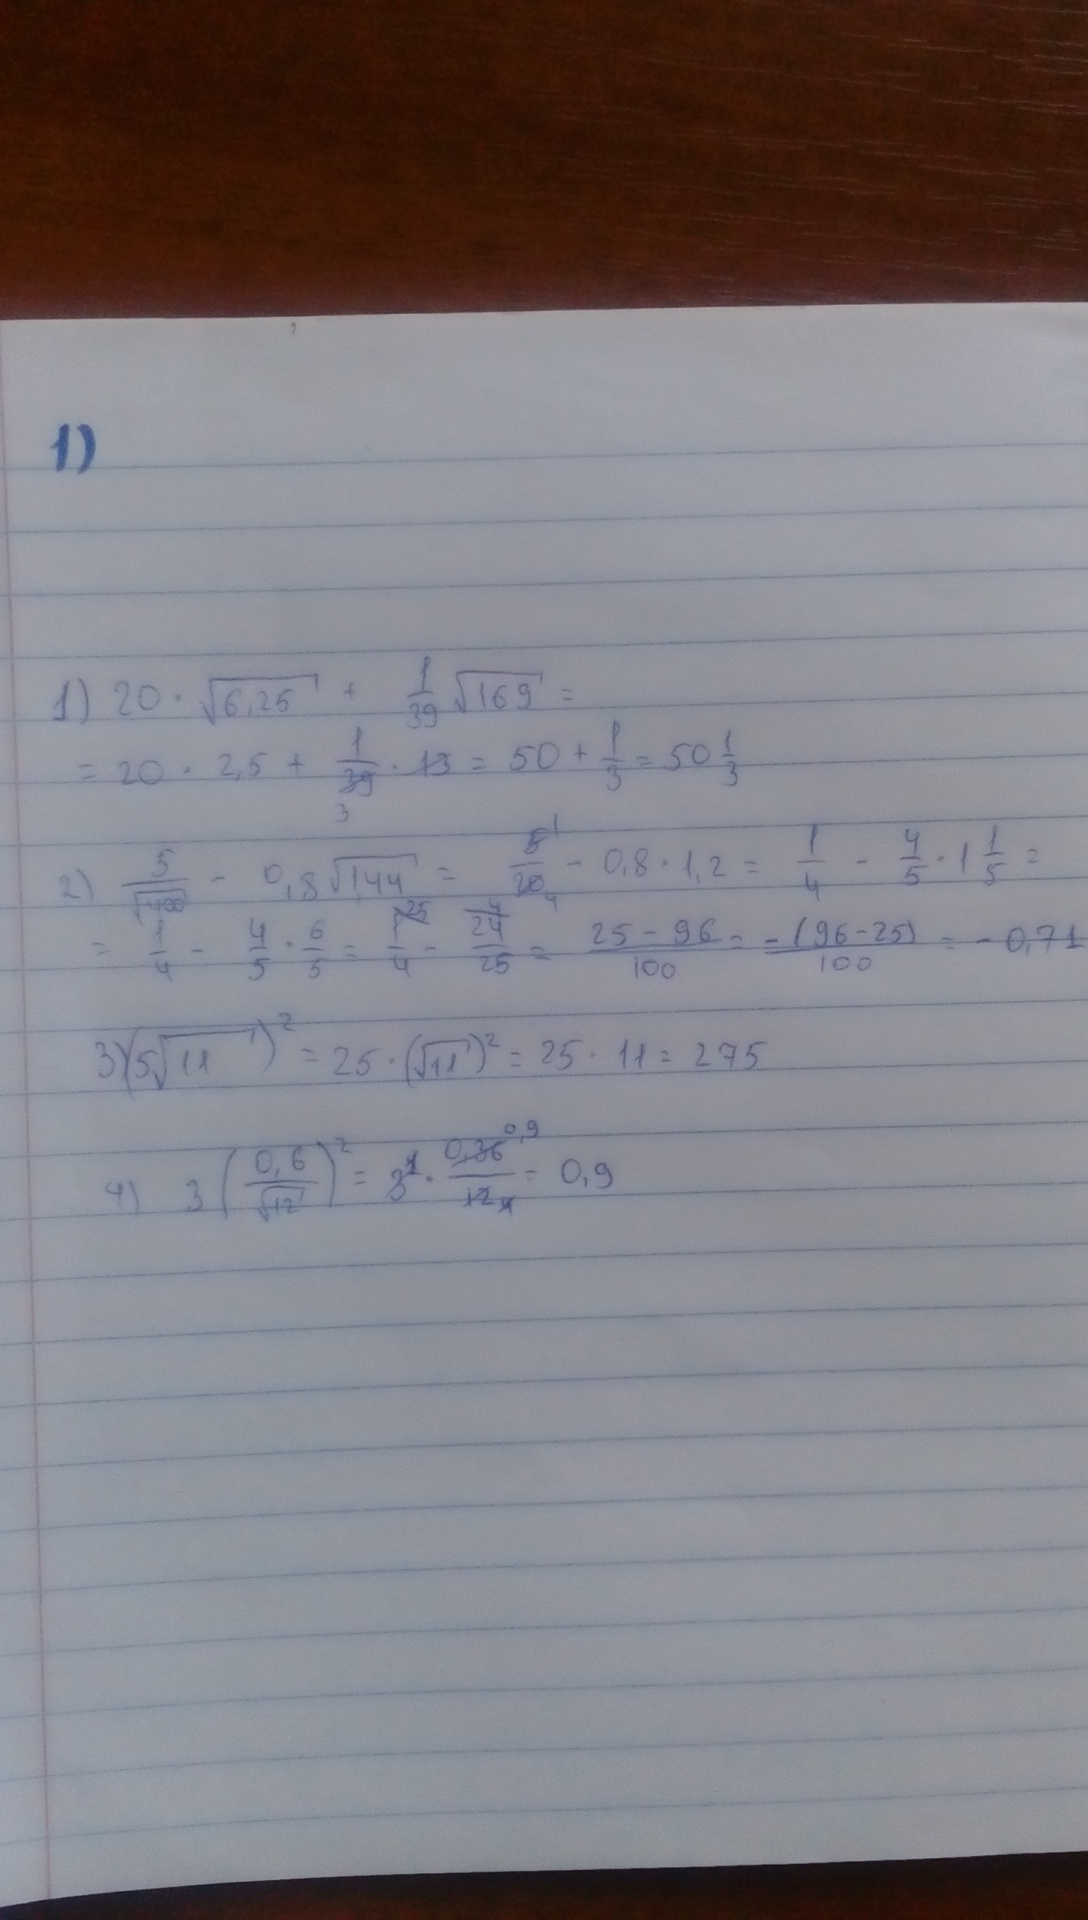 1)
1) 20 · √6,25 + 1/39 √169 =
= 20 · 2,5 + 1/39 3 · 13 = 50 + 1/3 = 50 1/3
2) 5/√400 - 0,8√1,44 = 5 1/20 4 - 0,8 · 1,2 = 1/4 - 4/5 · 1 1/5 =
= 1/4 - 4/5 · 6/5 = 1 25/4 - 4 24/25 = 25 - 96/100 = -(96-25)/100 = - 0,71
3) (5√11)² = 25 · (√11)² = 25 · 11 = 275
4) 3 (0,6/√12)² = 3 1 · 0,36 0,9/12 4 = 0,9